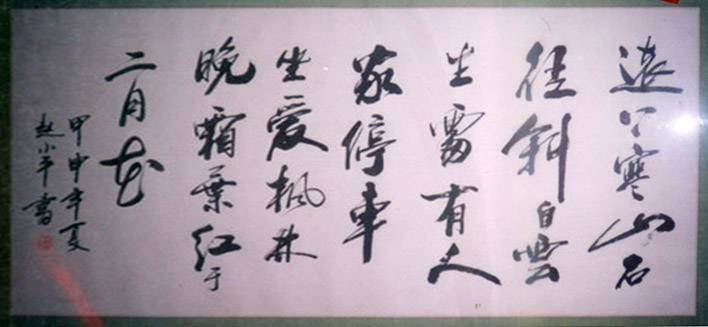 遠上寒山石
径斜白雲
生處有人
家停車
坐愛楓林
晚霜葉紅于
二月花
甲申年夏
赵小平書